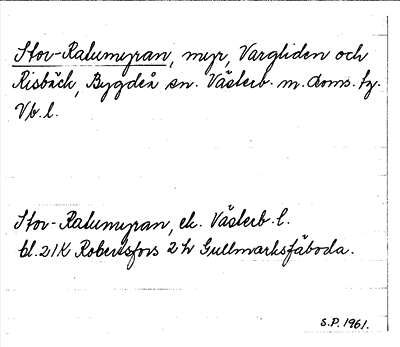 Stor-Ratumyran, myr, Vargliden och
Risbäck, Bygdeå sn. Västerb. m. doms. tg.
Vb. l.
Stor-Ratumyran, ek. Västerb. l.
bl. 21K Robertsfors 2 h Gullmarksfäboda.
S.P. 1961.